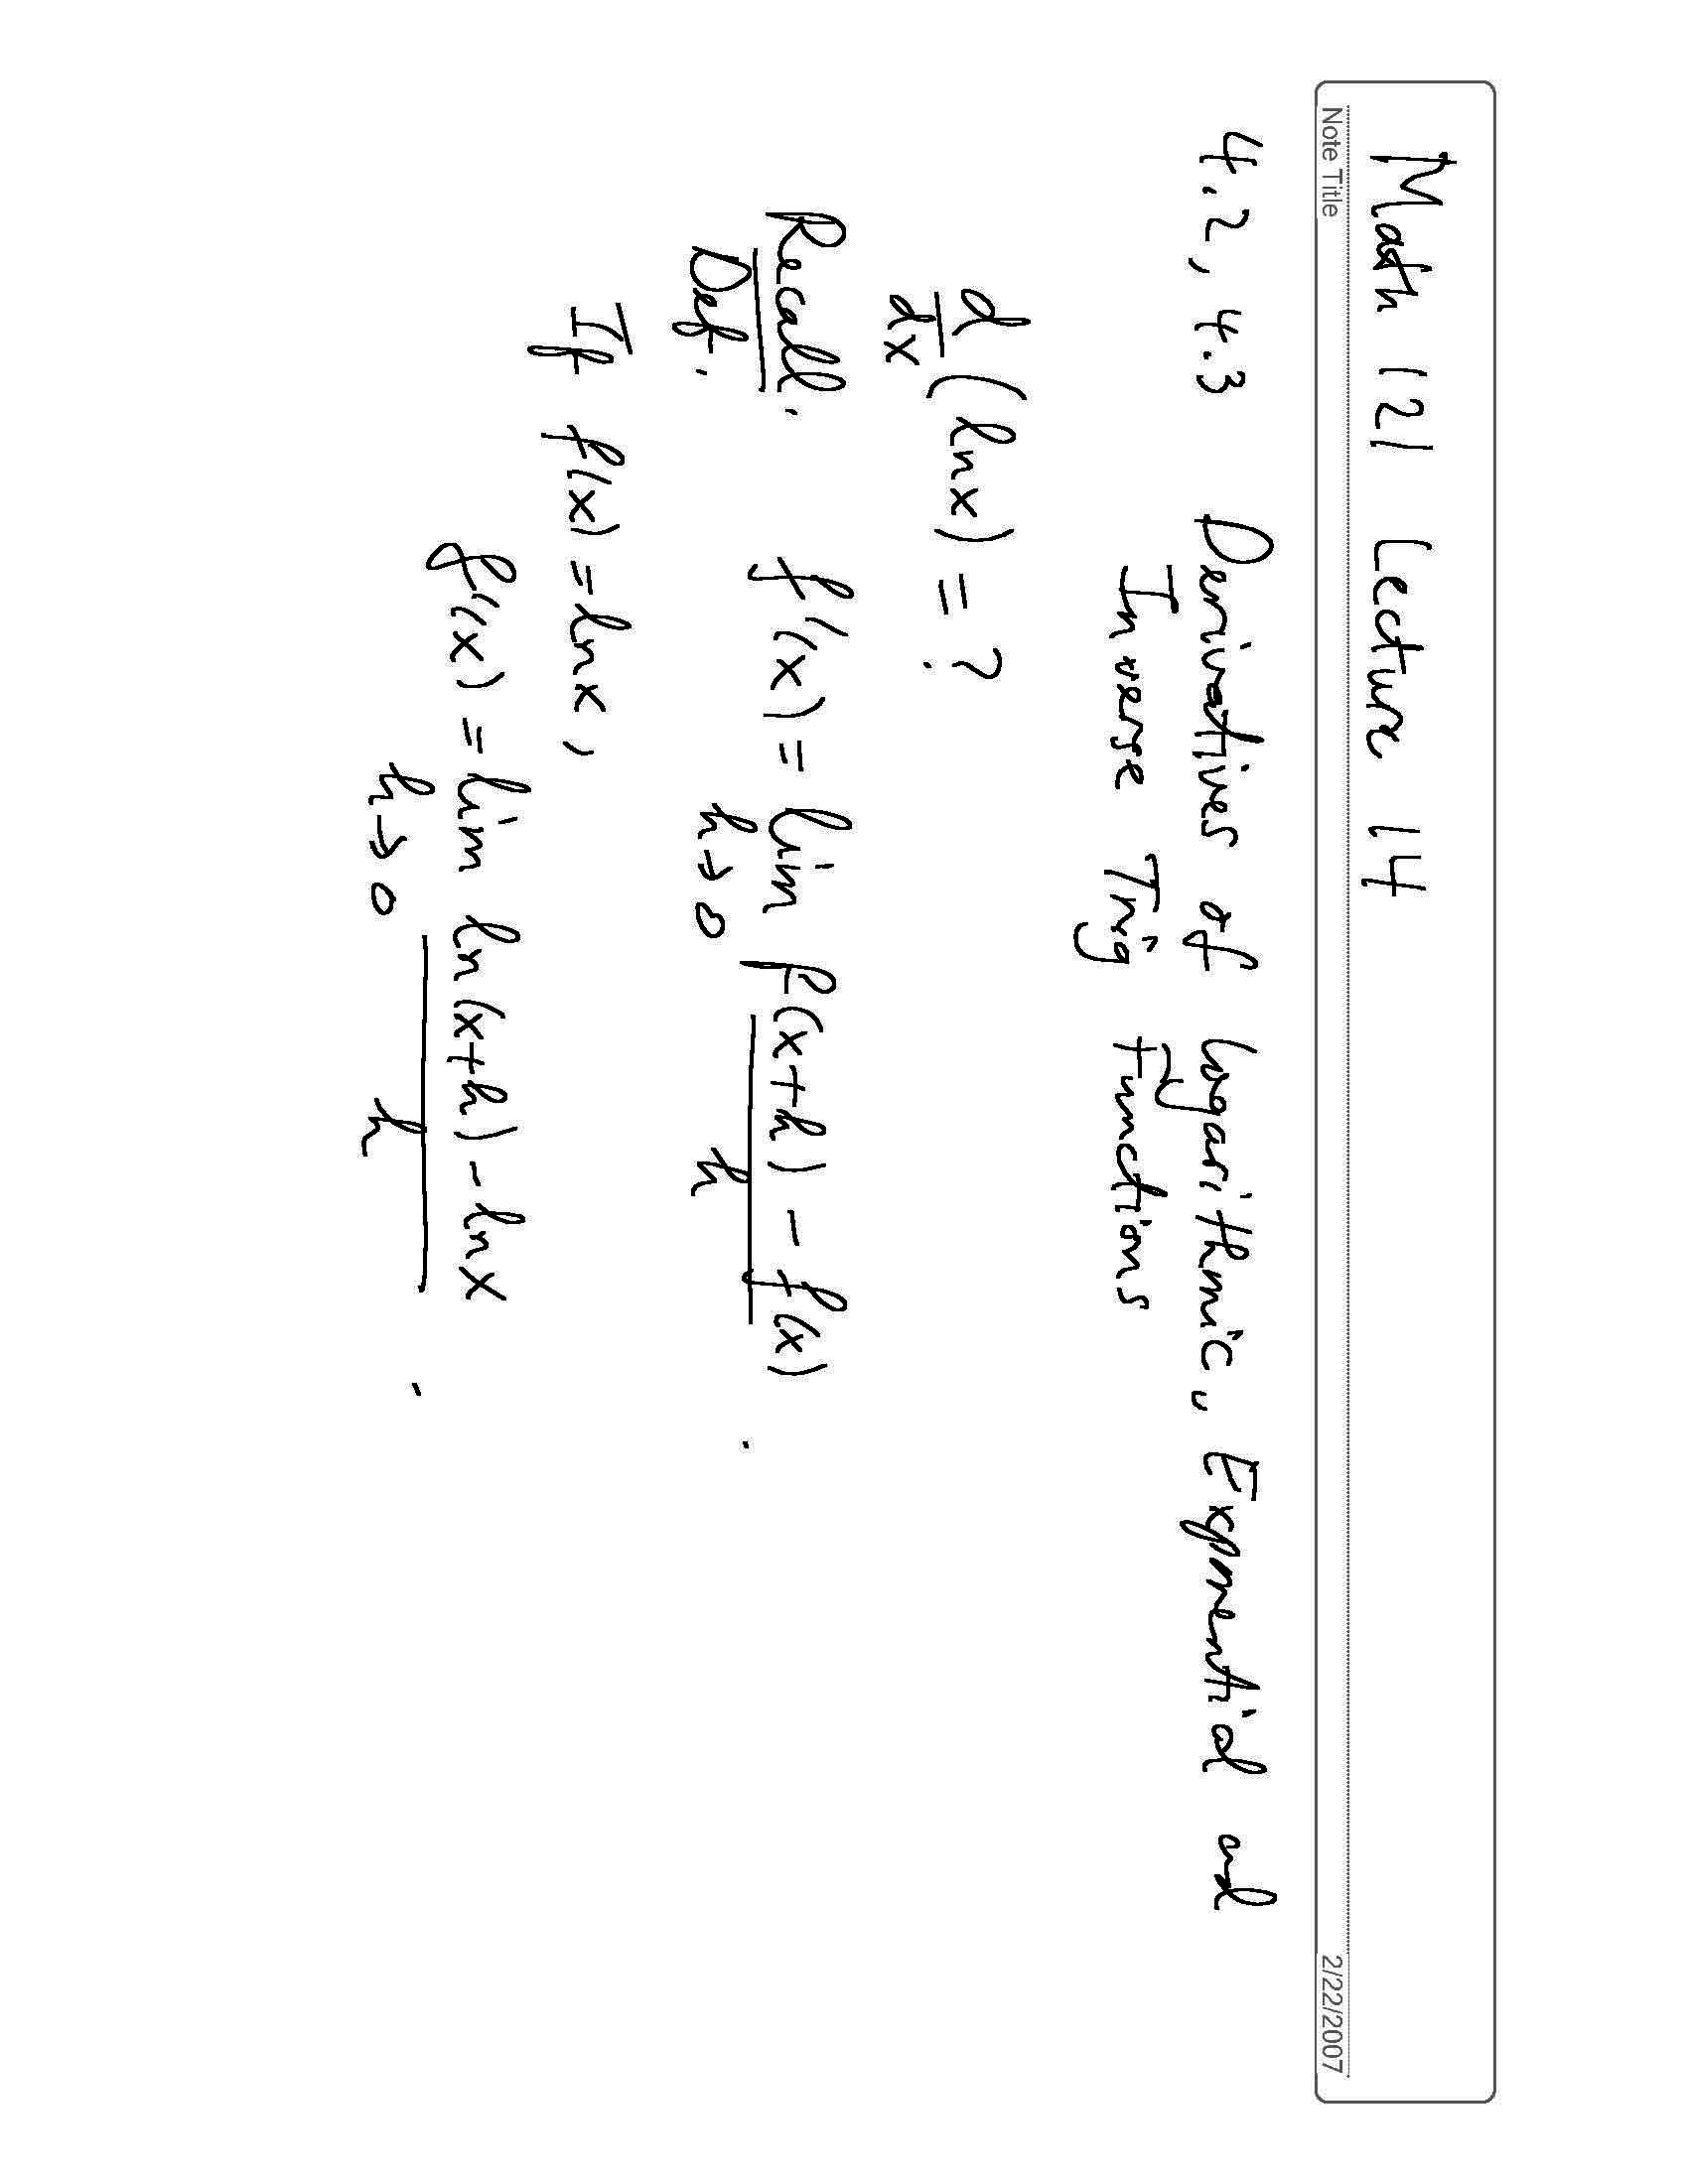 Math 121 Lecture 14
Note Title
2/22/2007
4.2, 4.3 Derivatives of Logarithmic, Exponential and
Inverse Trig Functions
d/dx (ln x) = ?
Recall. f'(x) = lim h→0 f(x+h) - f(x) / h .
Def.
If f(x) = ln x,
f'(x) = lim h→0 ln(x+h) - ln x / h .